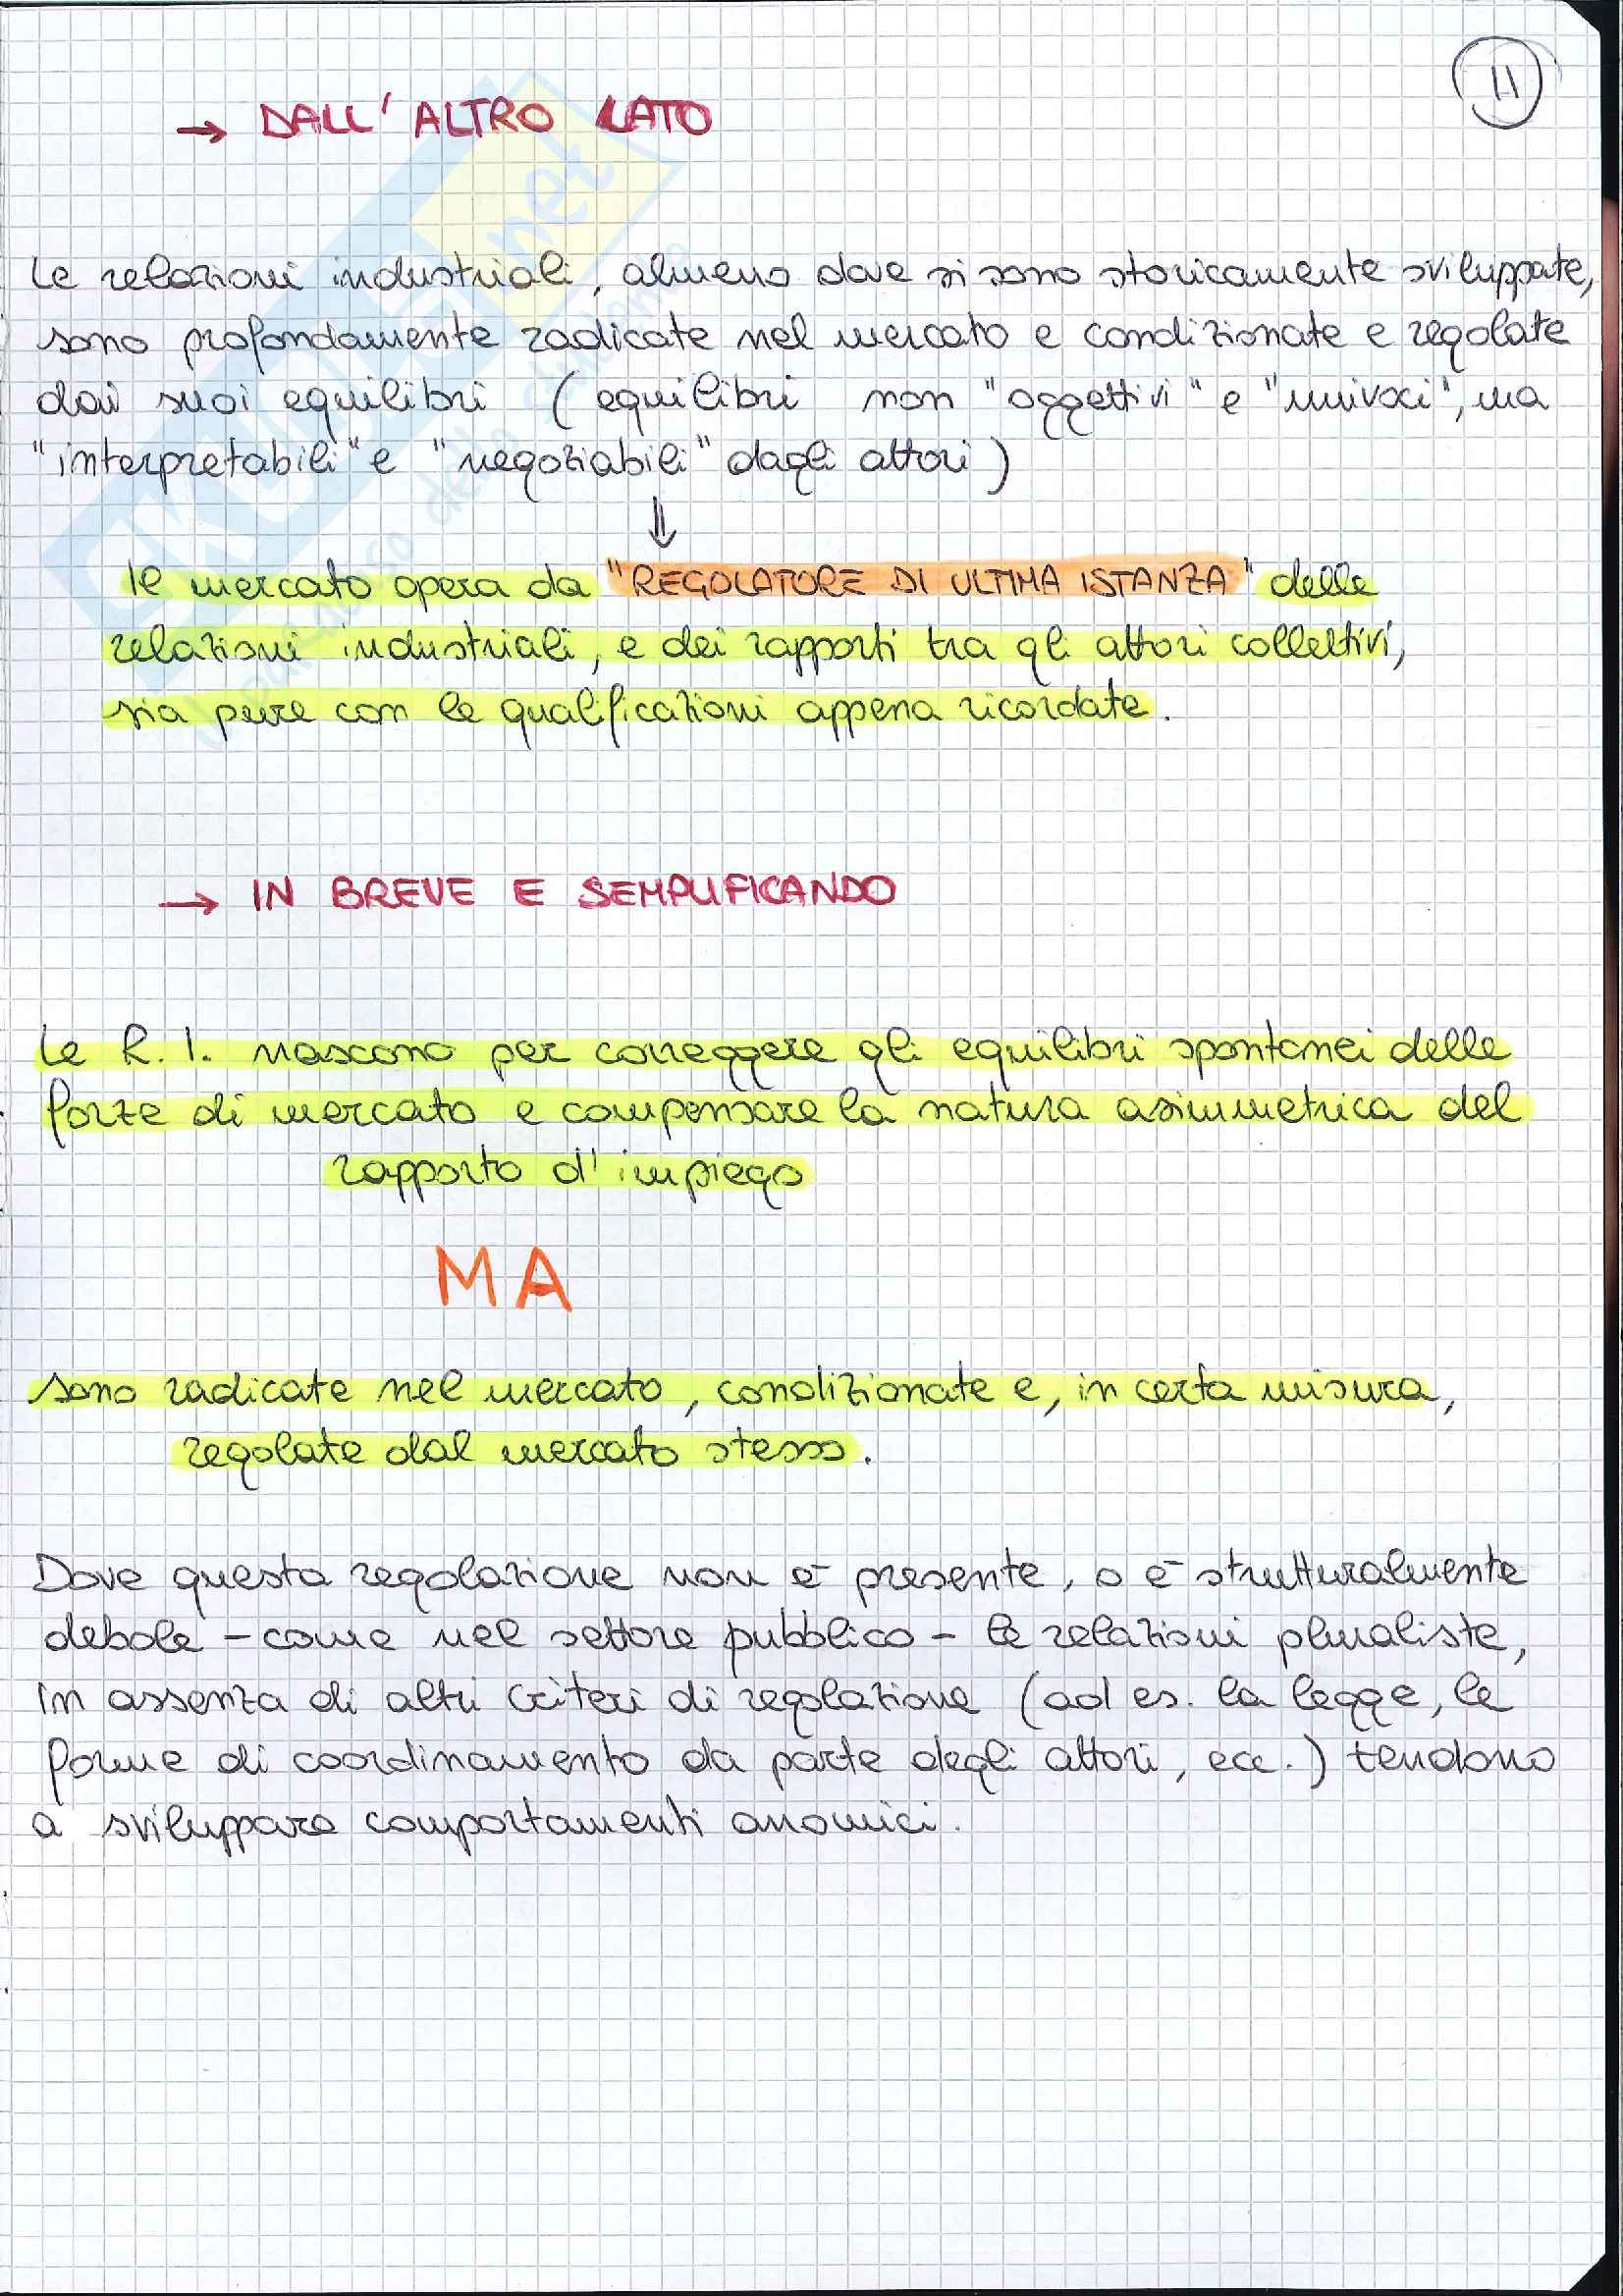 11
→ DALL'ALTRO LATO
Le relazioni industriali, almeno dove si sono storicamente sviluppate,
sono profondamente radicate nel mercato e condizionate e regolate
dai suoi equilibri (equilibri non "oggettivi" e "univoci", ma
"interpretabili" e "negoziabili" dagli attori)
⇓
Il mercato opera da "REGOLATORE DI ULTIMA ISTANZA" delle
relazioni industriali, e dei rapporti tra gli attori collettivi,
sia pure con le qualificazioni appena ricordate.
→ IN BREVE E SEMPLIFICANDO
Le R.I. nascono per correggere gli equilibri spontanei delle
forze di mercato e compensare la natura asimmetrica del
rapporto d'impiego
MA
sono radicate nel mercato, condizionate e, in certa misura,
regolate dal mercato stesso.
Dove questa regolazione non è presente, o è strutturalmente
debole - come nel settore pubblico - le relazioni pluraliste,
in assenza di altri criteri di regolazione (ad es. la legge, le
forme di coordinamento da parte degli attori, ecc.) tendono
a sviluppare comportamenti anomici.